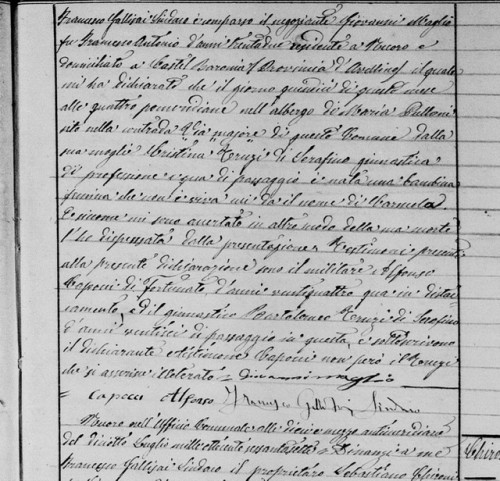 Francesco Gallisai Sindaco è comparso il negoziante Giovanni Maglio
fu Francesco Antonio d'anni trentadue residente a Nuoro e
domiciliato a Castel Baronia (Provincia d'Avellino) il quale
mi ha dichiarato che il giorno quindici di questo mese
alle quattro pomeridiane nell'albergo di Maria
sito nella contrada Via majore di questo Comune dalla
sua moglie Cristina Truzi di Serafino ginnastica
di professione e qua di passaggio è nata una bambina
femina che non è viva cui dà il nome di Carmela
E siccome mi sono accertato in altro modo della sua morte
l'ho dispensata dalla presentazione. Testimoni presenti
alla presente dichiarazione sono il militare Alfonso
Caponi di Fortunato, d'anni ventiquattro qua in distac
camento, ed il ginnastico Bartolomeo Truzi di Serafino
d'anni ventisei di passaggio in questa, e sottoscrivono
il dichiarante e testimone Caponi non però il Truzi
che si asserisce illeterato = Giovanni Maglio
Capocci Alfonso Francesco Gallisai Sindaco
Nuoro nell'Ufficio Comunale alle dieci e mezzo antimeridiane
del diciotto Luglio mille ottocento sessantasette Dinanzi a me
Francesco Gallisai Sindaco il proprietario Sebastiano Chironi
Chiron